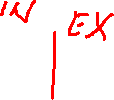 IN | EX